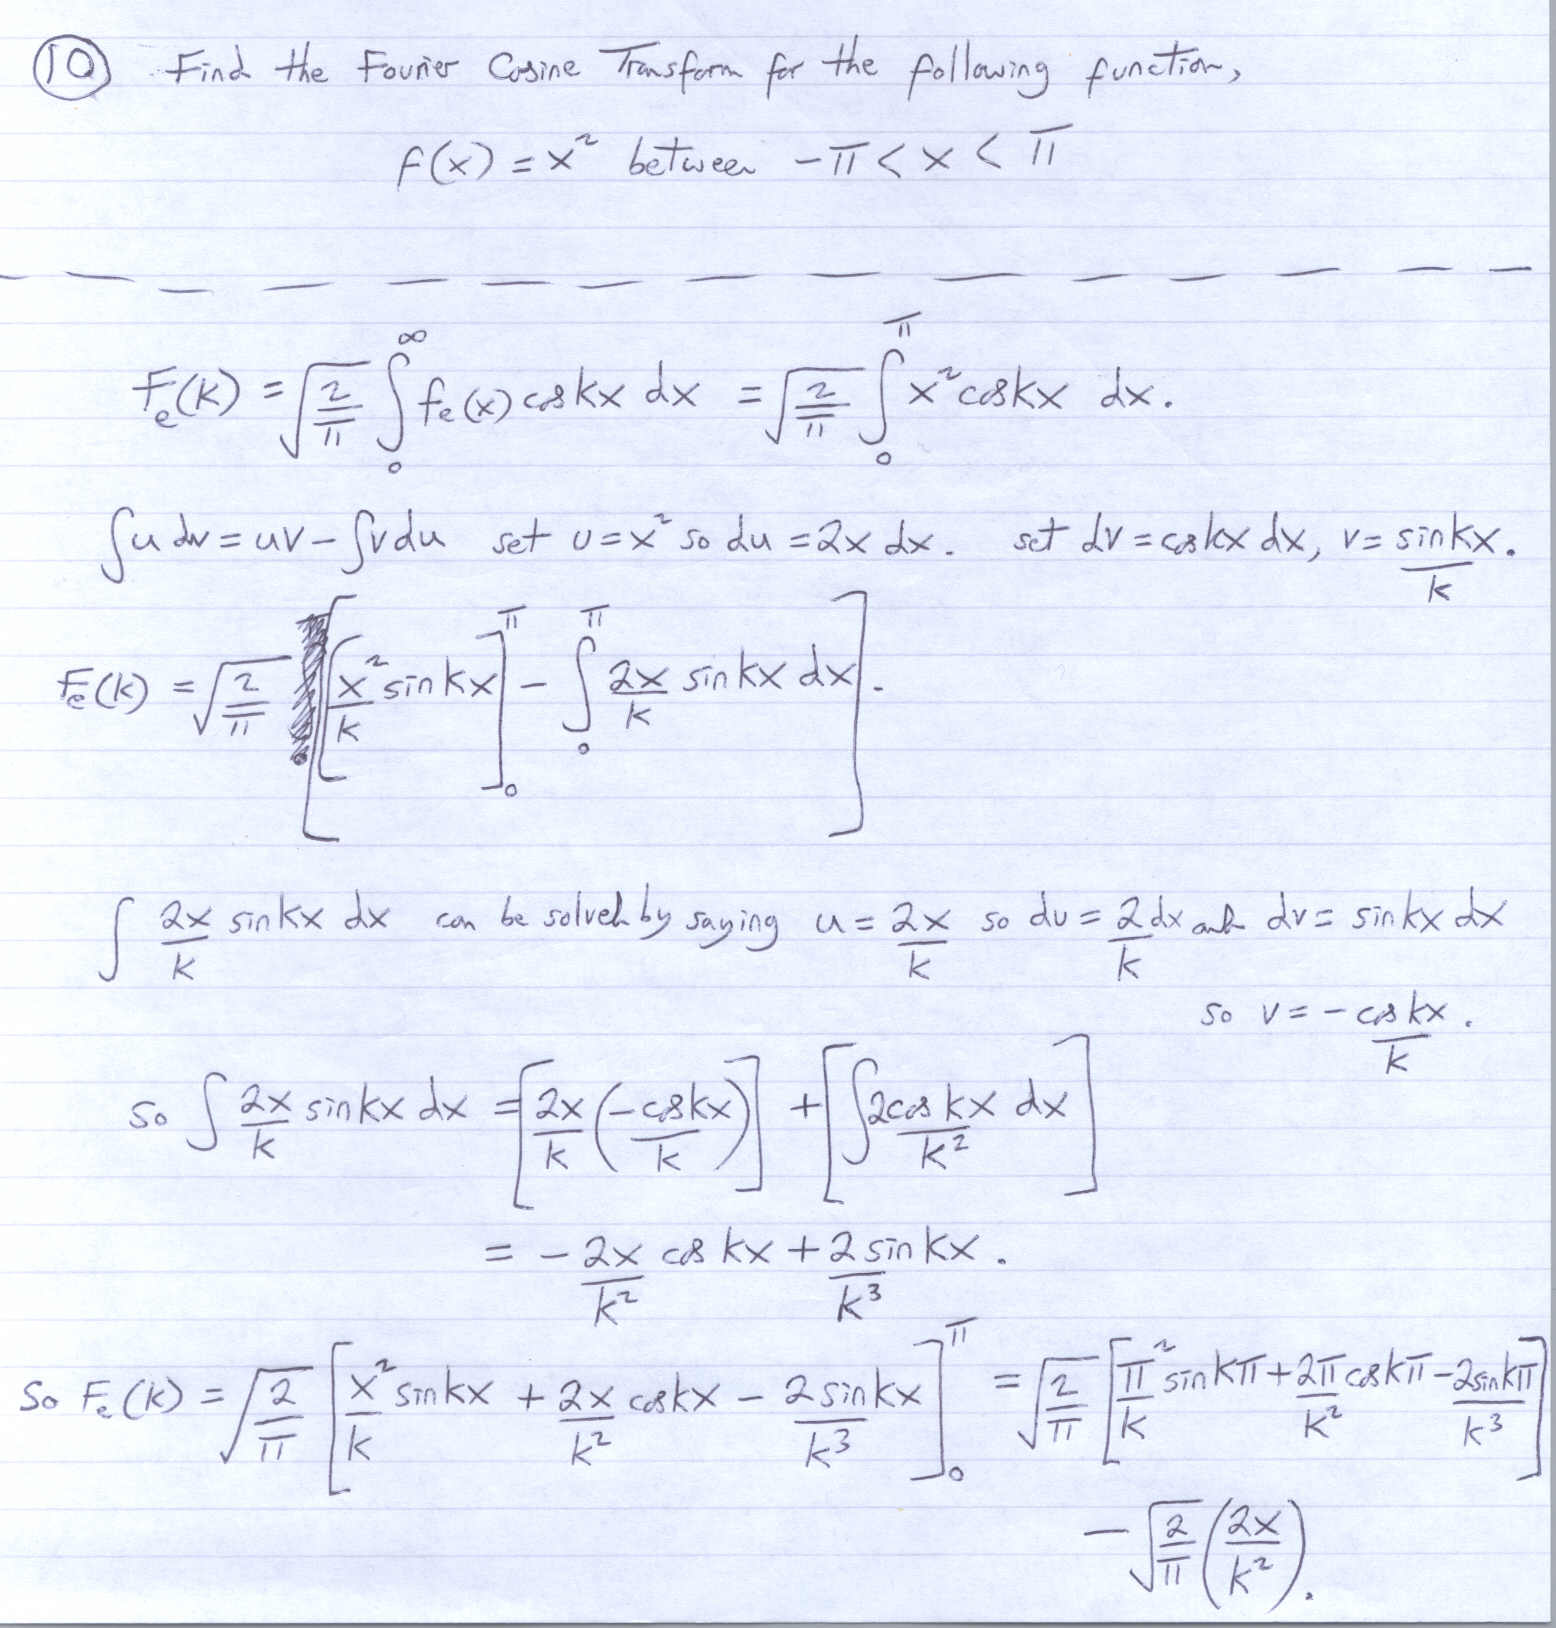 10 Find the Fourier Cosine Transform for the following function,
f(x) = x² between -π < x < π
Fₑ(k) = √(2/π) ∫₀^∞ fₑ(x) cos kx dx = √(2/π) ∫₀^π x² cos kx dx.
∫u dv = uv - ∫v du set u = x² so du = 2x dx. set dv = cos kx dx, v = sin kx/k.
Fₑ(k) = √(2/π) [[x²/k sin kx]₀^π - ∫₀^π 2x/k sin kx dx].
∫ 2x/k sin kx dx can be solved by saying u = 2x/k so du = 2/k dx and dv = sin kx dx
so v = -cos kx/k.
so ∫ 2x/k sin kx dx = [2x/k (-cos kx/k)] + [∫ 2cos kx/k² dx]
= -2x/k² cos kx + 2 sin kx/k³.
So Fₑ(k) = √(2/π) [x²/k sin kx + 2x/k² cos kx - 2 sin kx/k³]₀^π = √(2/π) [π²/k sin kπ + 2π/k² cos kπ - 2sin kπ/k³]
- √(2/π) (2x/k²).